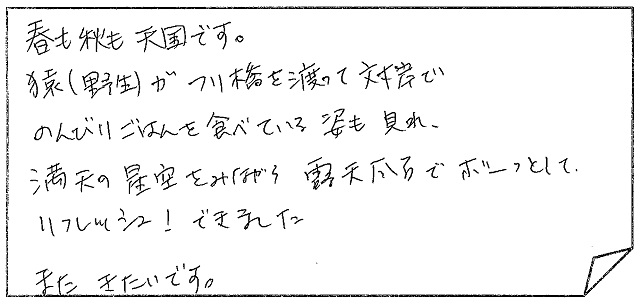 春も秋も天国です。
猿(野生)がつり橋を渡って対岸で
のんびりごはんを食べている姿も見れ、
満天の星空をみながら露天風呂でボーっとして、
リフレッシュ!できました
またきたいです。